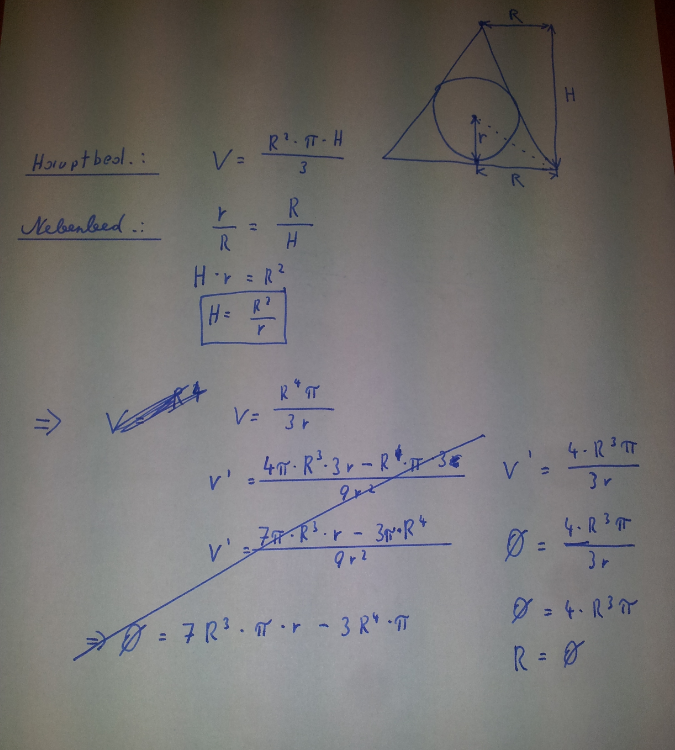 R
H
r
R
Hauptbed.: V = R² · π · H / 3
Nebenbed.: r / R = R / H
H · r = R²
H = R² / r
⇒ V = R⁴π / 3r
V' = 4π · R³ · 3r − R⁴ · π · 3 / 9r²
V' = 4 · R³π / 3r
V' = 7π · R³ · r − 3π · R⁴ / 9r²
Ø = 4 · R³π / 3r
⇒ Ø = 7R³ · π · r − 3R⁴ · π
Ø = 4 · R³π
R = Ø